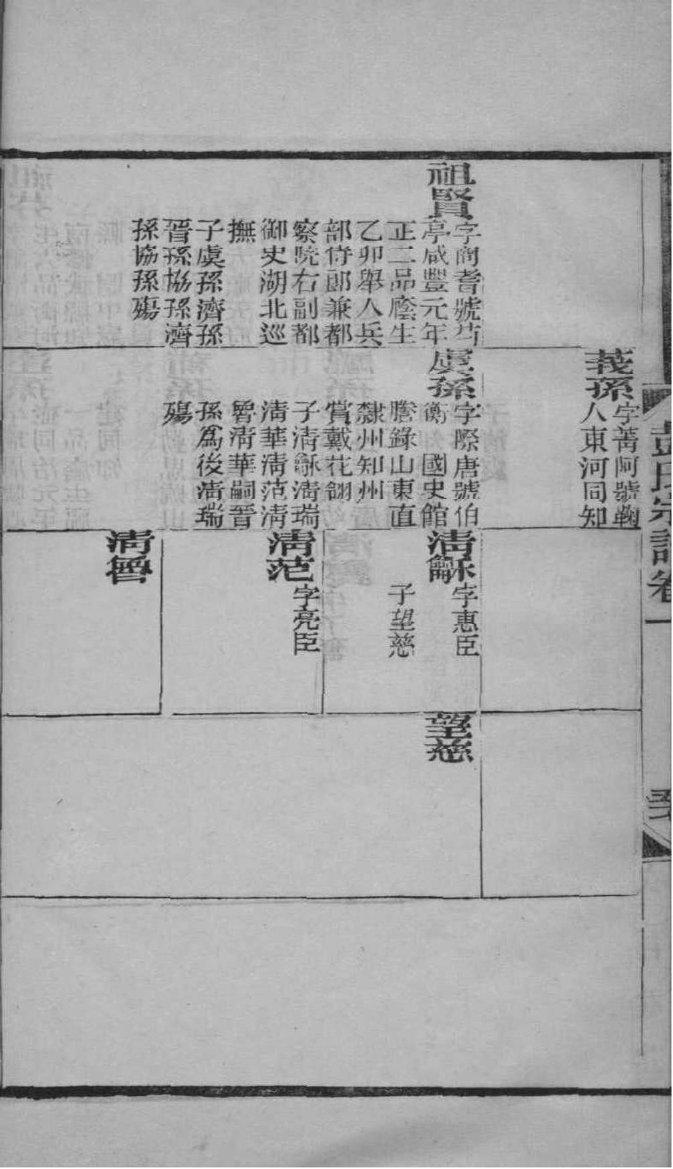 彭氏宗譜卷一
莪孫
字菁阿號鞠
人東河同知
祖賢
字商耆號芍
亭咸豐元年
正二品廕生
乙卯舉人兵
部侍郎兼都
察院右副都
御史湖北巡
撫
子虞孫濟孫
晉孫協孫濟
孫協孫殤
虞孫
字際唐號伯
衡 國史館
謄錄山東直
隸州知州
賞戴花翎
子清龢清瑞
清華清范清
魯清華嗣晉
孫爲後清瑞
殤
清龢
字惠臣
子望慈
清范
字亮臣
清魯
望慈